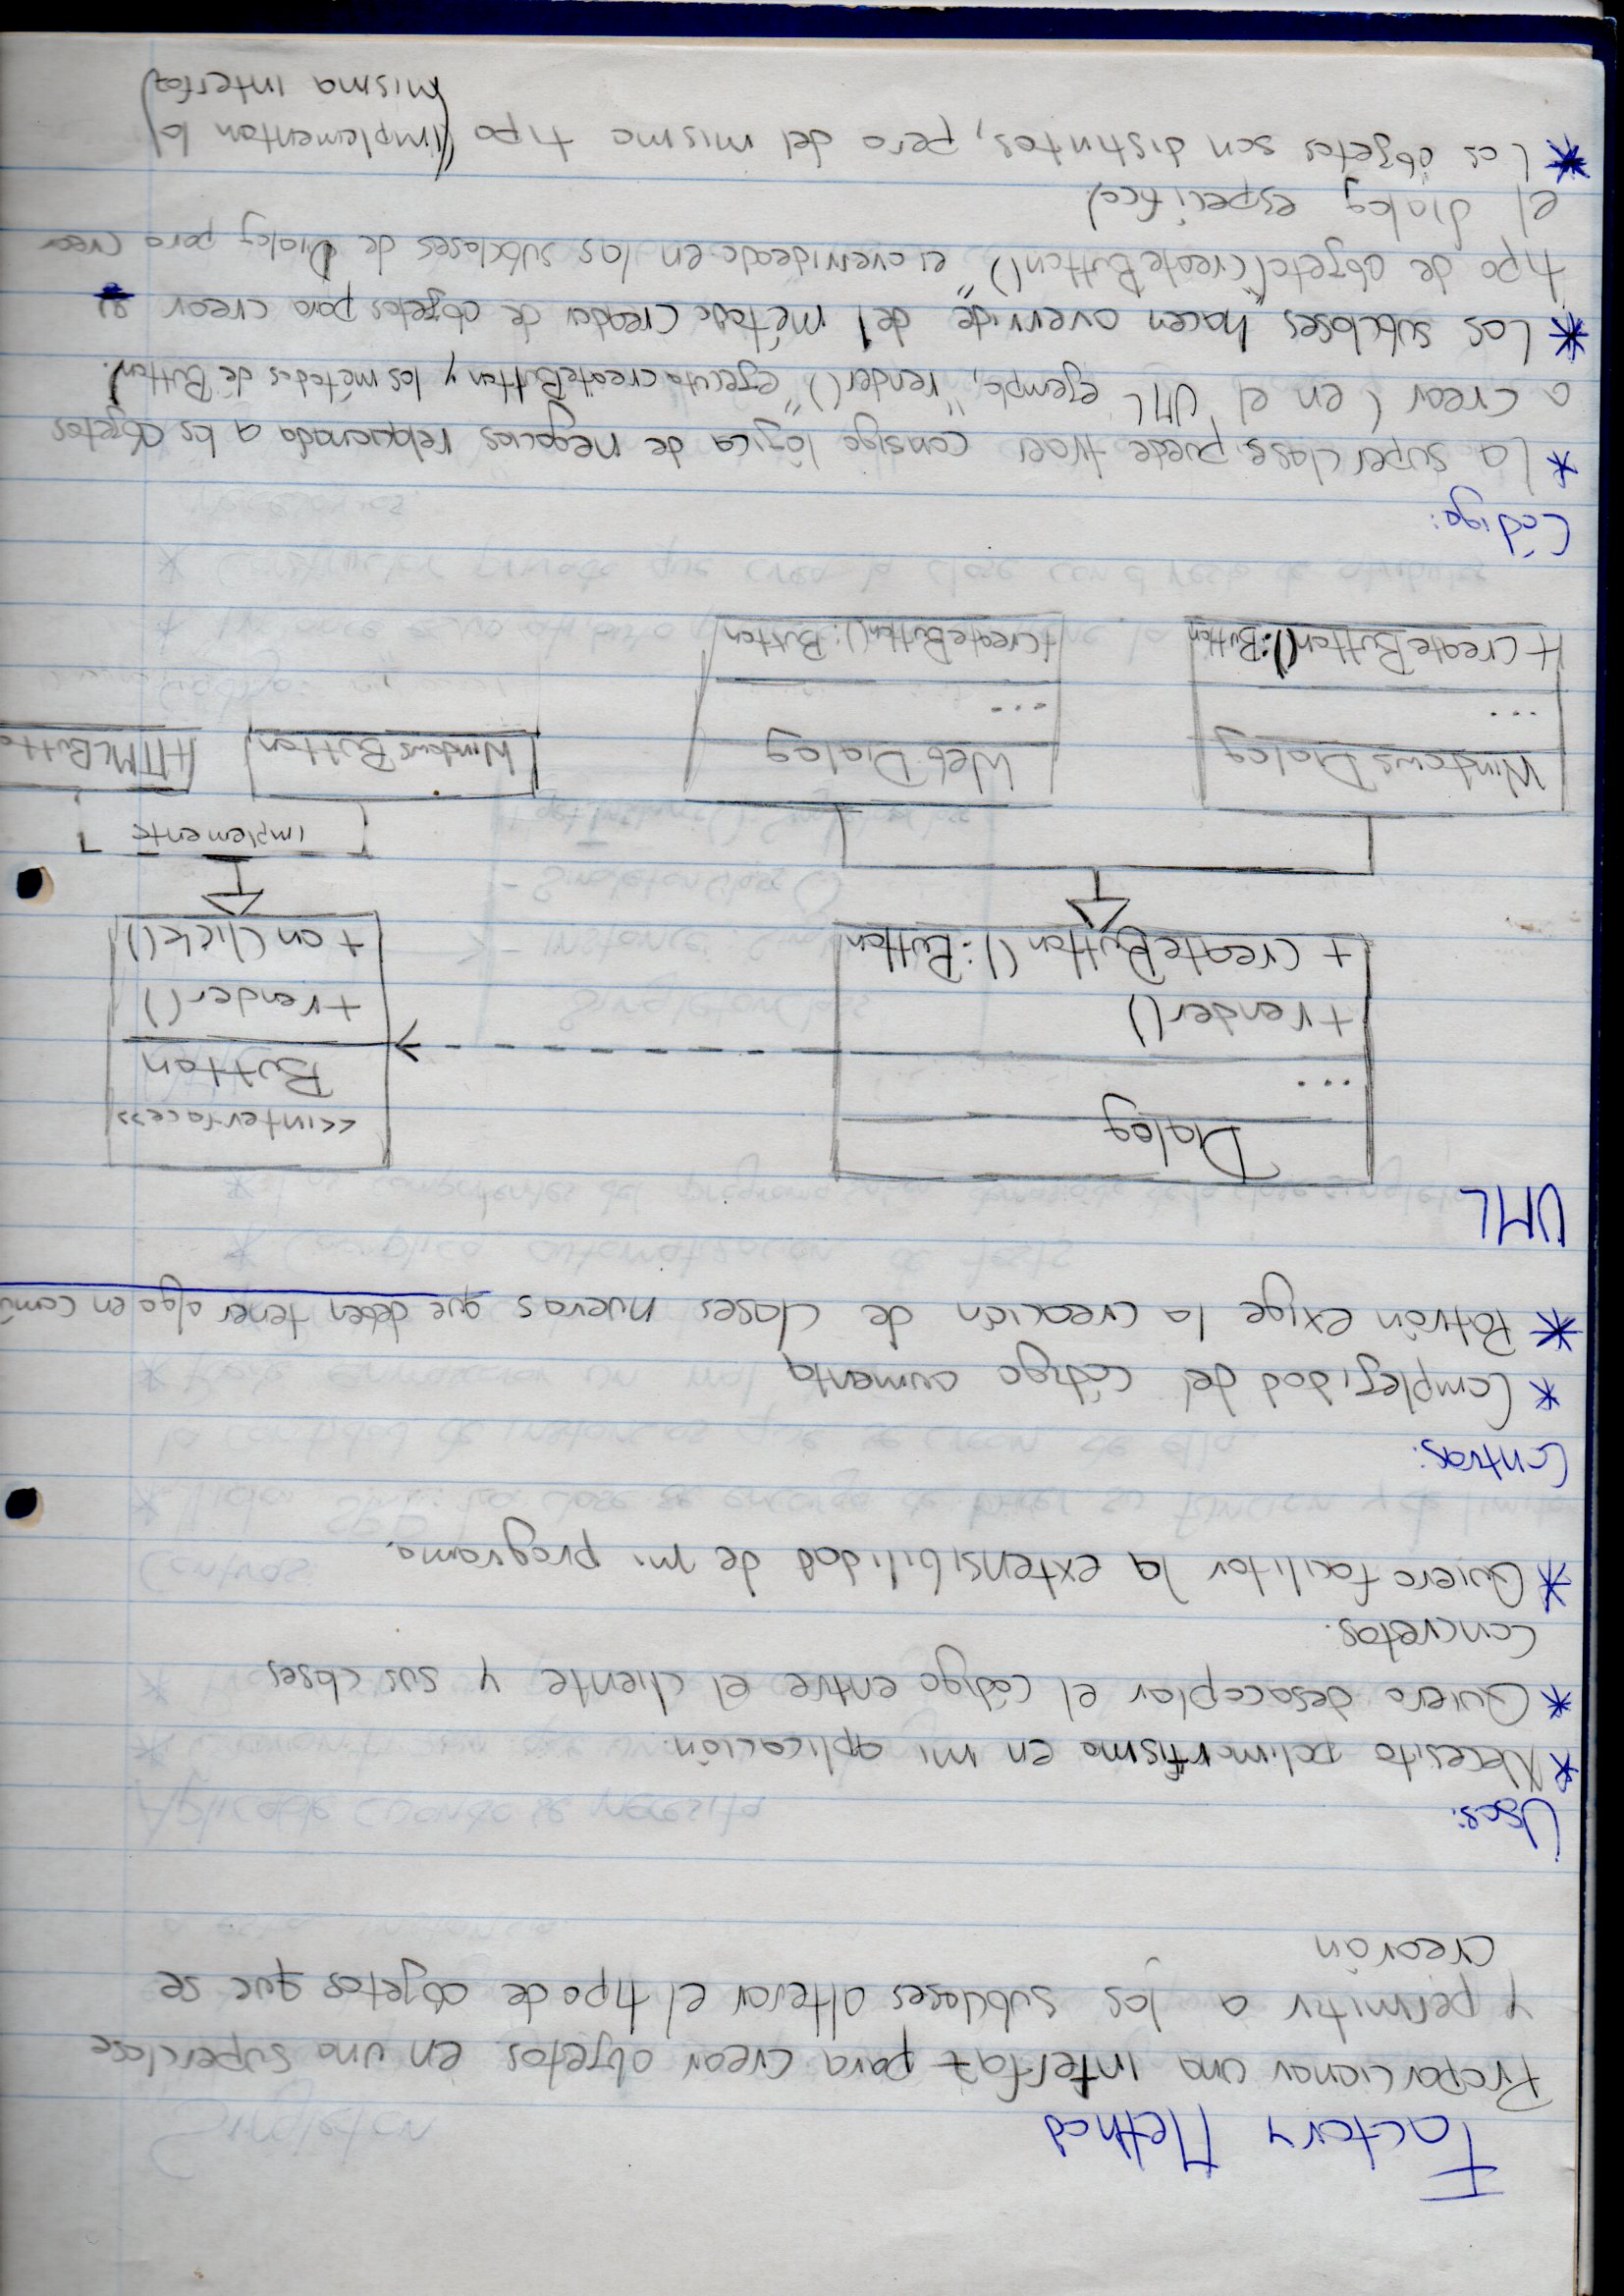 Factory Method
Proporcionar una interfaz para crear objetos en una superclase
y permitir a las subclases alterar el tipo de objetos que se
crearán
Usos:
* Necesito polimorfismo en mi aplicación.
* Quiero desacoplar el código entre el cliente y sus clases
concretas.
* Quiero facilitar la extensibilidad de mi programa.
Contras:
* Complejidad del código aumenta
* Patrón exige la creación de clases nuevas que deben tener algo en comú
UML
Dialog
...
+render()
+ createButton():Button
<<interface>>
Button
+render()
+ onClick()
implements
WindowsDialog
...
+createButton():Button
WebDialog
...
+createButton(): Button
WindowsButton
HTMLButto
Código:
* La superclase puede traer consigo lógica de negocios relacionada a los objetos
a crear (en el UML ejemplo, "render()" ejecuta createButton y los métodos de Button).
* Las subclases hacen override del método creador de objetos para crear su
tipo de objeto("createButton()" es overrideado en las subclases de Dialog para crear
el dialog especifico)
* Los objetos son distintos, pero del mismo tipo (implementan la
misma interfaz)